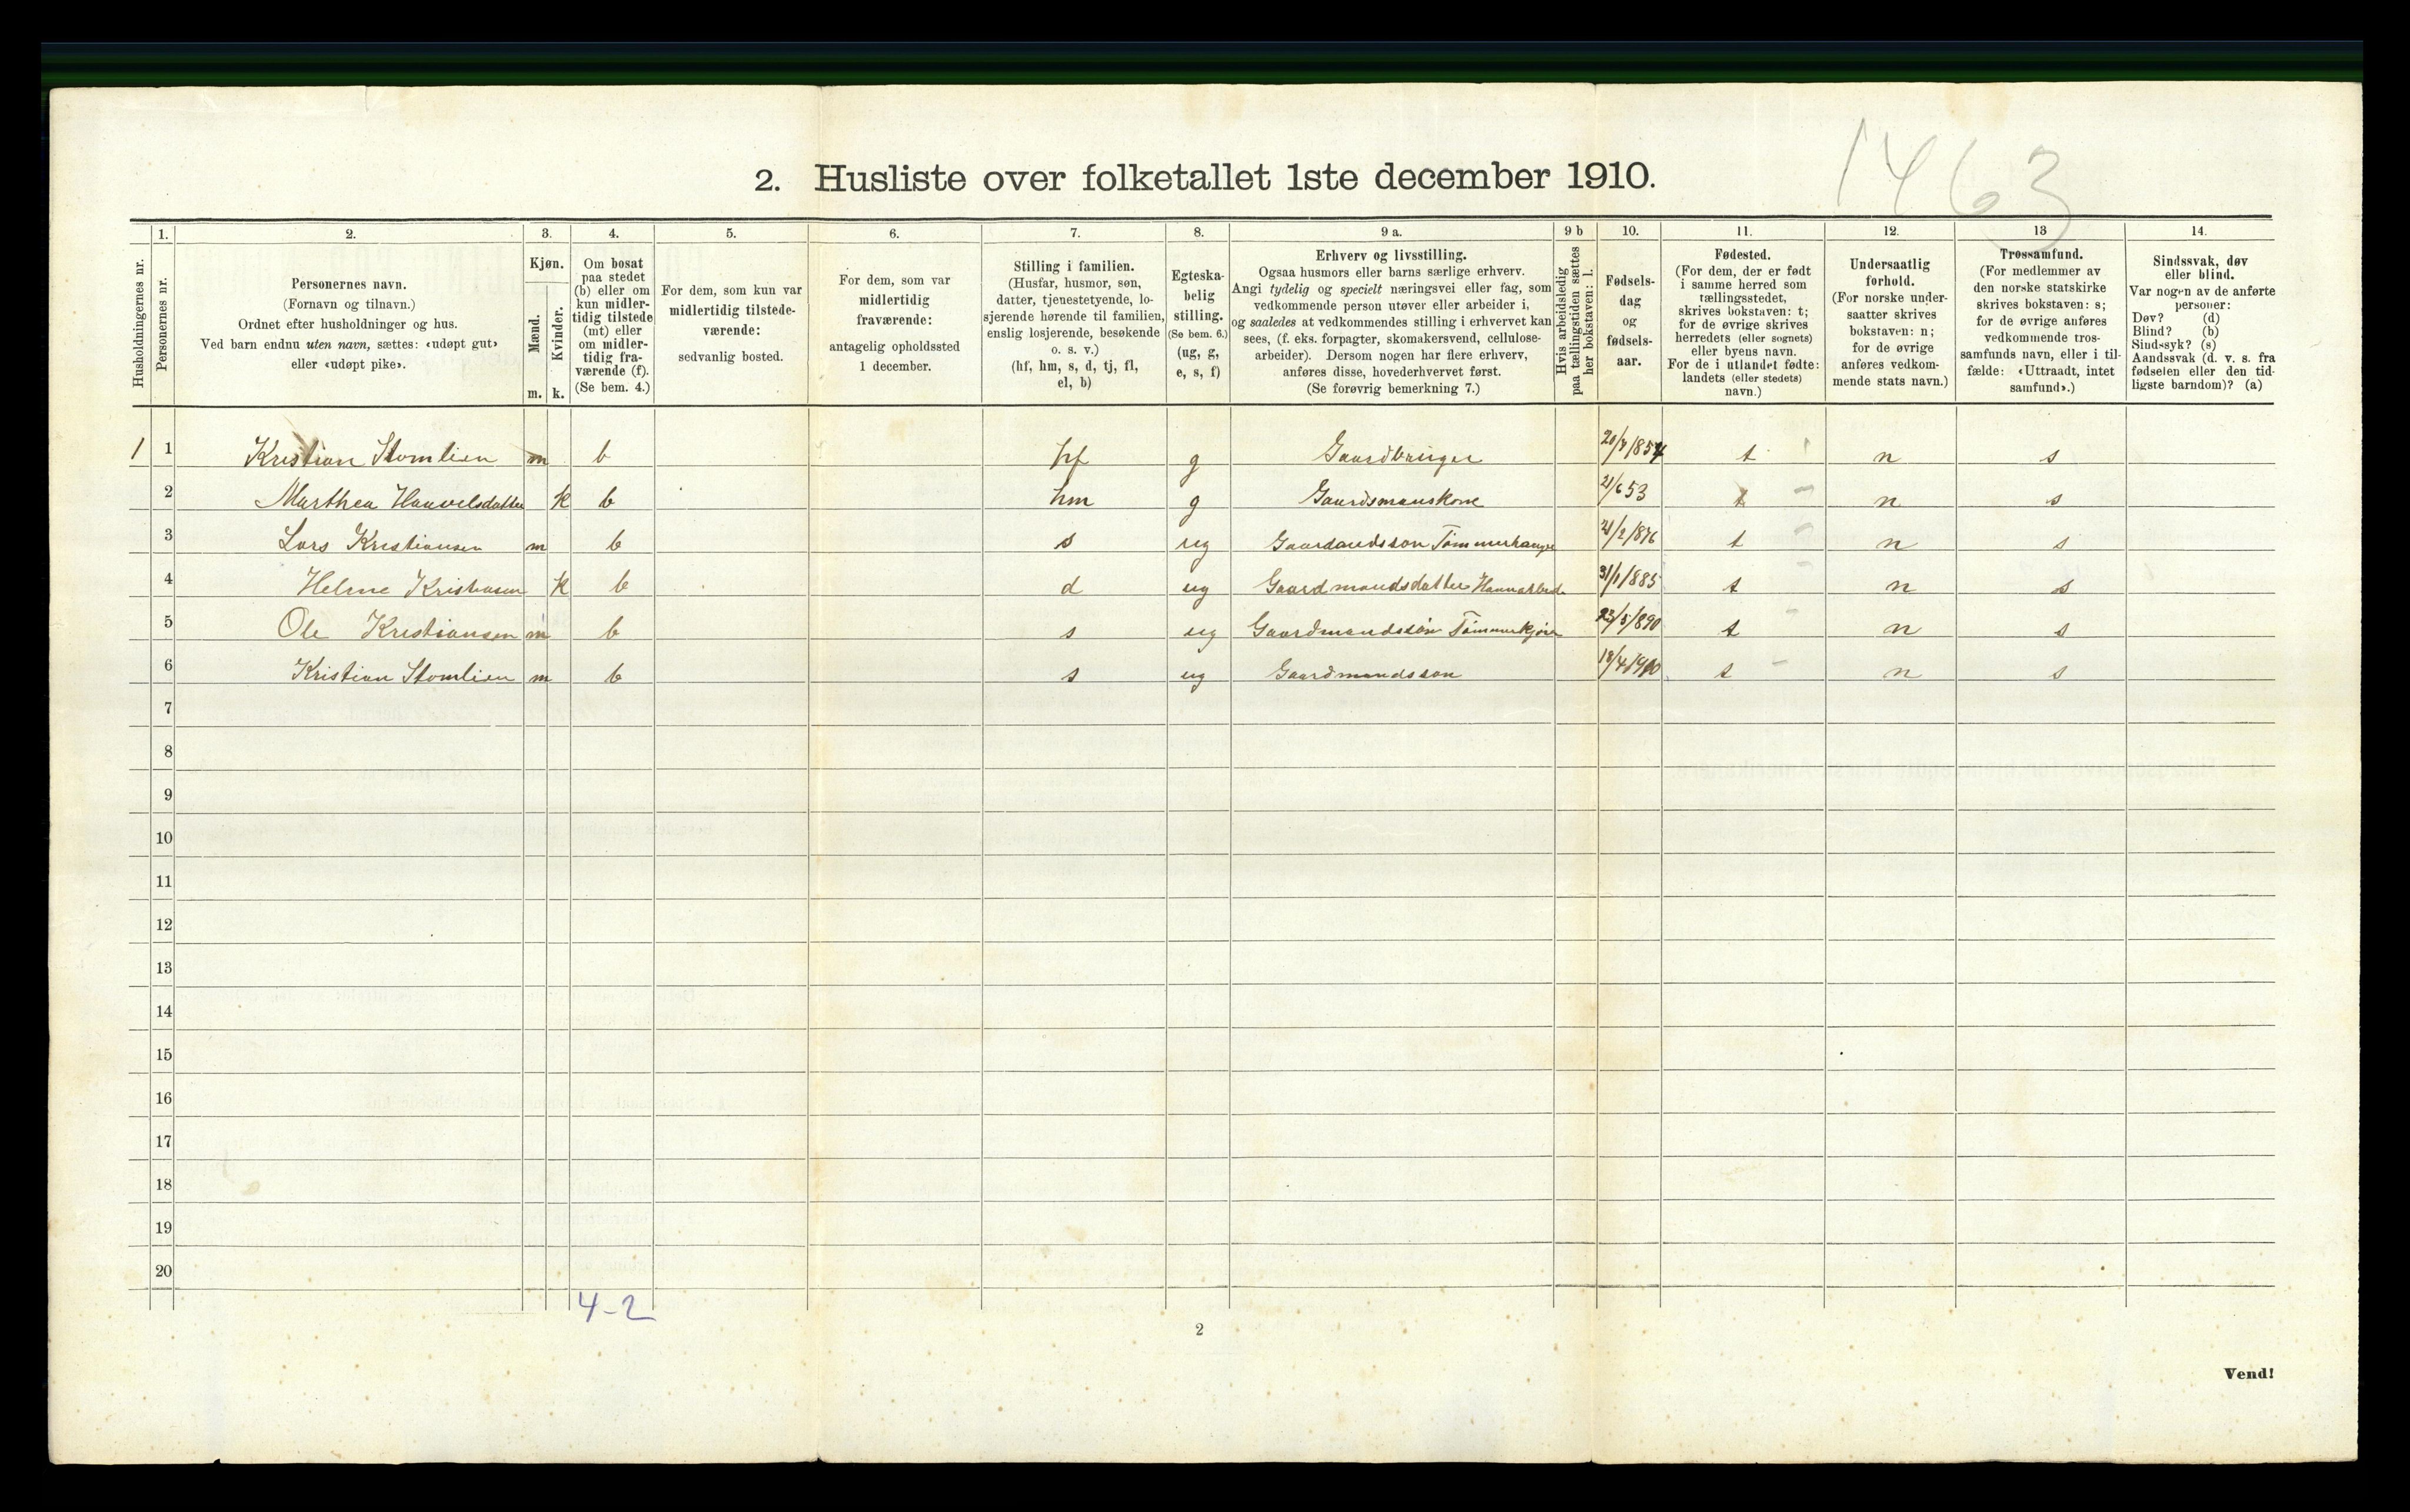 1463
2. Husliste over folketallet 1ste december 1910.
1. 2. 3. 4. 5. 6. 7. 8. 9 a. 9 b 10. 11. 12. 13 14.
Husholdningernes nr.
Personernes nr.
Personernes navn.
(Fornavn og tilnavn.)
Ordnet efter husholdninger og hus.
Ved barn endnu uten navn, sættes: «udøpt gut»
eller «udøpt pike».
Kjøn.
Mænd.
Kvinder.
m. k.
Om bosat
paa stedet
(b) eller om
kun midler-
tidig tilstede
(mt) eller
om midler-
tidig fra-
værende (f).
(Se bem. 4.)
For dem, som kun var
midlertidig tilstede-
værende:
sedvanlig bosted.
For dem, som var
midlertidig
fraværende:
antagelig opholdssted
1 december.
Stilling i familien.
(Husfar, husmor, søn,
datter, tjenestetyende, lo-
sjerende hørende til familien,
enslig losjerende, besøkende
o. s. v.)
(hf, hm, s, d, tj, fl,
el, b)
Egteska-
belig
stilling.
(Se bem. 6.)
(ug, g,
e, s, f)
Erhverv og livsstilling.
Ogsaa husmors eller barns særlige erhverv.
Angi tydelig og specielt næringsvei eller fag, som
vedkommende person utøver eller arbeider i,
og saaledes at vedkommendes stilling i erhvervet kan
sees, (f. eks. forpagter, skomakersvend, cellulose-
arbeider). Dersom nogen har flere erhverv,
anføres disse, hovederhvervet først.
(Se forøvrig bemerkning 7.)
Hvis arbeidsledig
paa tællingstiden sættes
her bokstaven: l.
Fødsels-
dag
og
fødsels-
aar.
Fødested.
(For dem, der er født
i samme herred som
tællingsstedet,
skrives bokstaven: t;
for de øvrige skrives
herredets (eller sognets)
eller byens navn.
For de i utlandet fødte:
landets (eller stedets)
navn.)
Undersaatlig
forhold.
(For norske under-
saatter skrives
bokstaven: n;
for de øvrige
anføres vedkom-
mende stats navn.)
Trossamfund.
(For medlemmer av
den norske statskirke
skrives bokstaven: s;
for de øvrige anføres
vedkommende tros-
samfunds navn, eller i til-
fælde: «Uttraadt, intet
samfund».)
Sindssvak, døv
eller blind.
Var nogen av de anførte
personer:
Døv? (d)
Blind? (b)
Sindssyk? (s)
Aandssvak (d. v. s. fra
fødselen eller den tid-
ligste barndom)? (a)
1 1 Kristian Stomlien m b hf g Gaardbruger 20/7/1854 t n s
2 Marthea Haavelsdatter k b hm g Gaardsmanskone 21/6 53 t n s
3 Lars Kristiansen m b s ug 21/2/876 t n s
4 Kristiansen k b d ug Gaardmandsdatter 31/1/885 t n s
5 Ole Kristiansen m b s ug Gaardmandssön Tömmerkjörer /5/890 t n s
6 Kristian Stomlien m b s ug Gaardmandsson 18/4/1900 t n s
7
8
9
10
11
12
13
14
15
16
17
18
19
20
4-2
2
Vend!